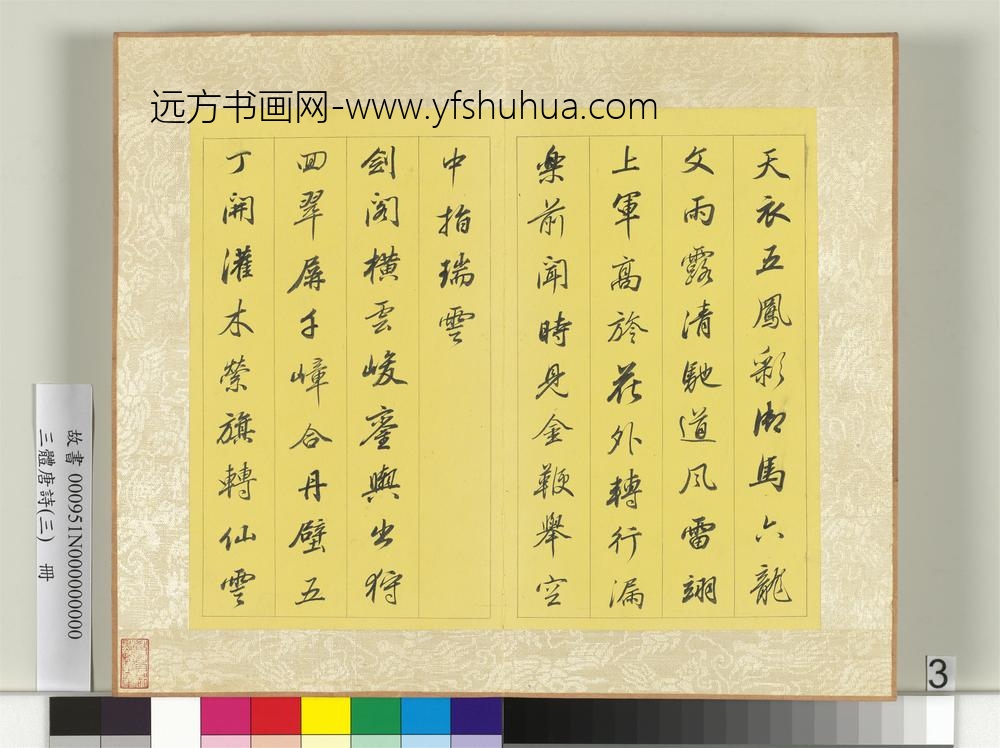 远方书画网-www.yfshuhua.com
天衣五鳳彩御馬六龍
文雨露清馳道風雷翊
上軍高旍花外轉行漏
樂前聞時見金鞭舉空
中指瑞雲
劍閣橫雲峻鑾輿出狩
回翠屏千嶂合丹壁五
丁開灌木縈旗轉仙雲
故書 000951N000000000
三體唐詩(三) 冊
3